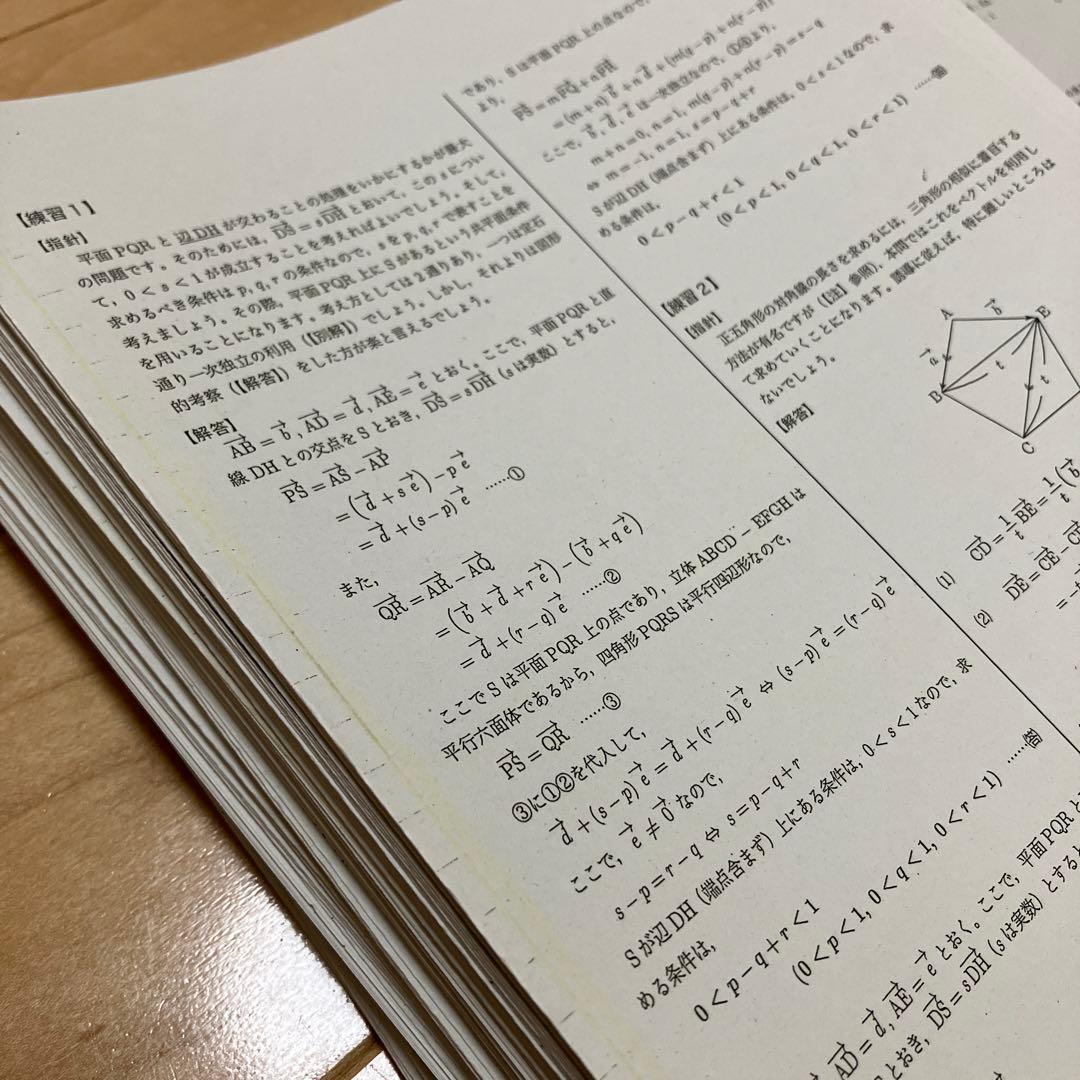 【練習1】
【指針】
平面PQRと辺DHが交わることの処理をいかにするかが最大
の問題です。そのためには、DS→=sDH→とおいて、このsについ
て、0<s<1が成立することを考えればよいでしょう。そして、
求めるべき条件はp,q,rの条件なので、sをp,q,rで表すことを
考えましょう。その際、平面PQR上にSがあるという共平面条件
を用いることになります。考え方としては2通りあり、一つは定石
通り一次独立の利用(【別解】)でしょう。しかし、それよりは図形
的考察(【解答】)をした方が楽と言えるでしょう。
【解答】
AB→=b→, AD→=d→, AE→=e→とおく。ここで、平面PQRと直
線DHとの交点をSとおき、DS→=sDH→(sは実数)とすると、
PS→=AS→−AP→
=(d→+se→)−pe→
=d→+(s−p)e→ ……①
また、
QR→=AR→−AQ→
=(b→+d→+re→)−(b→+qe→)
=d→+(r−q)e→ ……②
ここでSは平面PQR上の点であり、立体ABCD−EFGHは
平行六面体であるから、四角形PQRSは平行四辺形なので、
PS→=QR→ ……③
③に①②を代入して、
d→+(s−p)e→=d→+(r−q)e→⇔(s−p)e→=(r−q)e→
ここで、e→≠0→なので、
s−p=r−q⇔s=p−q+r
Sが辺DH(端点含まず)上にある条件は、0<s<1なので、求
める条件は、
0<p−q+r<1
(0<p<1, 0<q<1, 0<r<1) ……答
AD→=d→, AE→=e→とおく。ここで、平面PQRと
とおき、DS→=sDH→(sは実数)とすると
であり、Sは平面PQR上の点なので、
より、
PS→=mPQ→+nPR→
=(m+n)b→+nd→+{m(q−p)+n(r−p)}
ここで、b→,d→,e→は一次独立なので、①④より、
m+n=0, n=1, m(q−p)+n(r−p)=s−q
⇔m=−1, n=1, s=p−q+r
Sが辺DH(端点含まず)上にある条件は、0<s<1なので、求
める条件は、
0<p−q+r<1
(0<p<1, 0<q<1, 0<r<1) ……答
【練習2】
【指針】
正五角形の対角線の長さを求めるには、三角形の相似に着目する
方法が有名ですが(【注】参照)、本問ではこれをベクトルを利用し
て求めていくことになります。誘導に従えば、特に難しいところは
ないでしょう。
【解答】
A b→ E
a→ t t
B
C
(1) CD→=1/t BE→=1/t(b→
(2) DE→=CE→−C